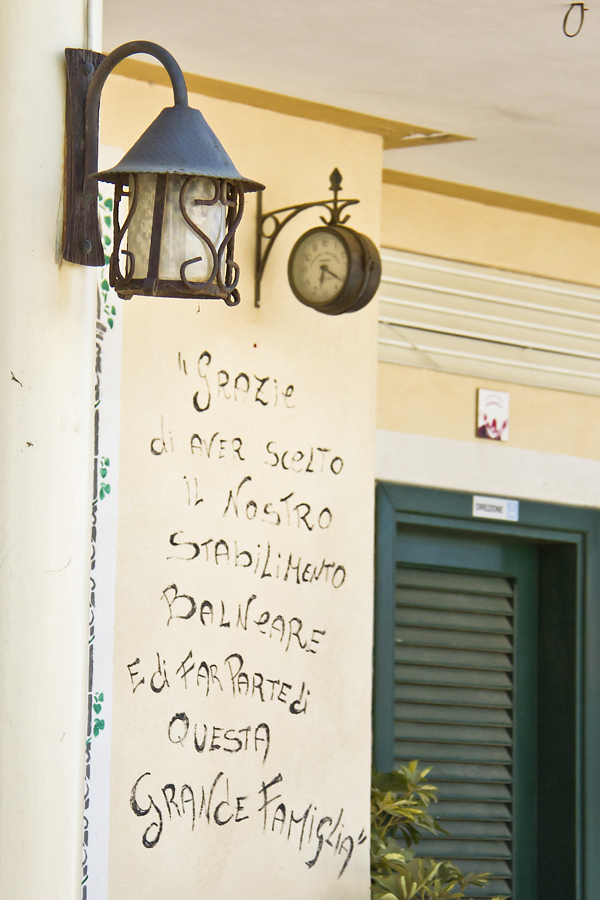 "GRAZIE
di AVER SCELTO
iL NOSTRO
STABILIMENTO
BALNEARE
E di FAR PARTE di
QUESTA
GRANDE FAMIGLIA"
DIREZIONE